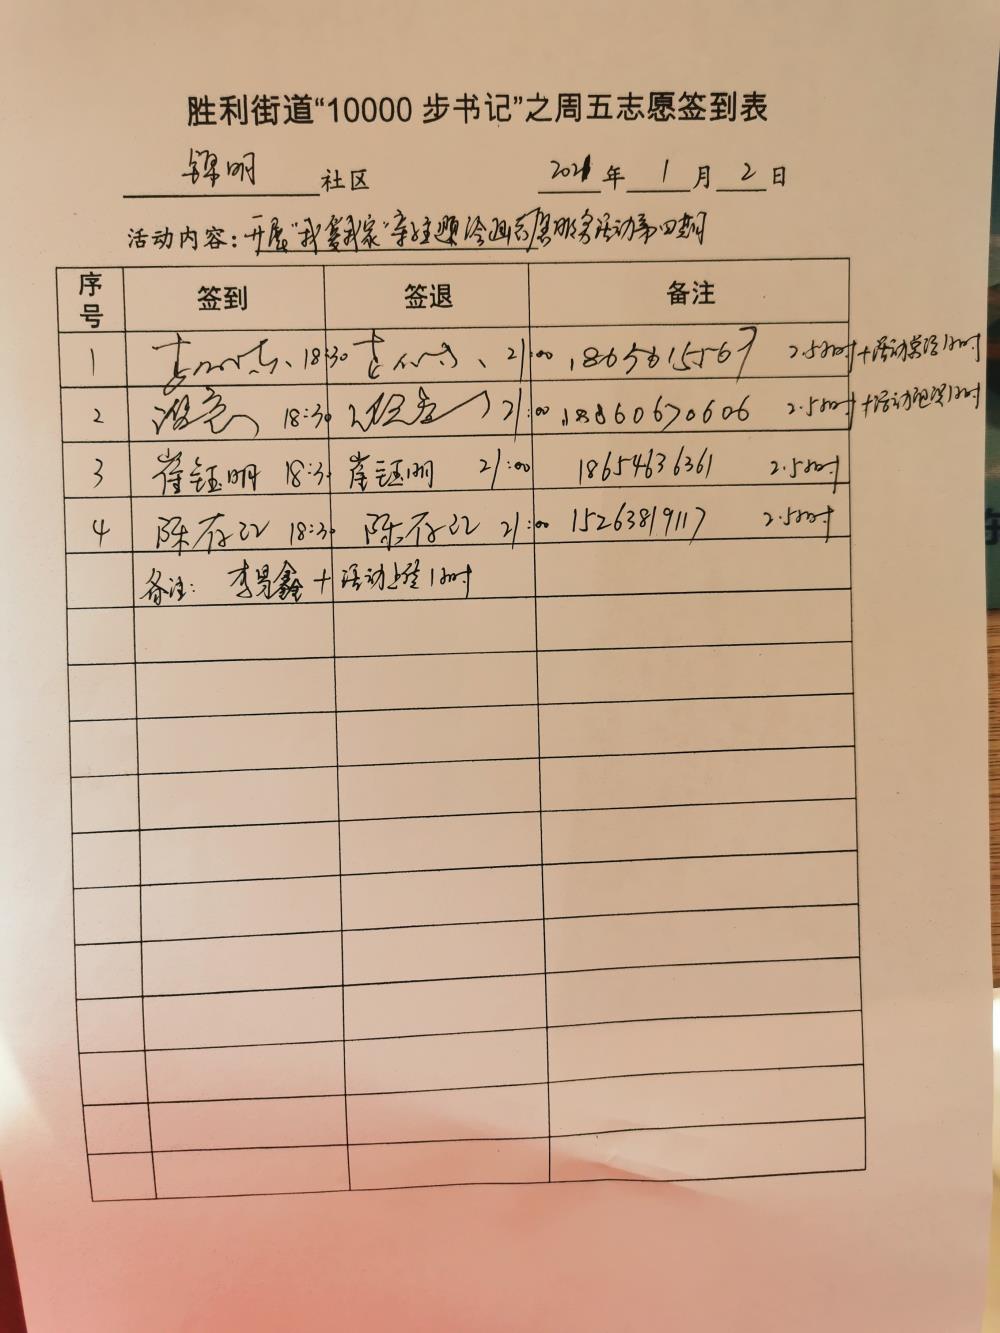 胜利街道“10000 步书记”之周五志愿签到表
锦明 社区 2021 年 1 月 2 日
活动内容：开展“我爱我家”亲主题绘画志愿服务活动第四期
序号 签到 签退 备注
1 18:30 21:00 1865615567 2.5小时+活动总结1小时
2 18:30 21:00 18860670606 2.5小时+活动1小时
3 崔钰明 18:30 崔钰明 21:00 18654636361 2.5小时
4 陈存 18:30 陈存 21:00 15263819117 2.5小时
备注： 李易鑫+活动上传1小时